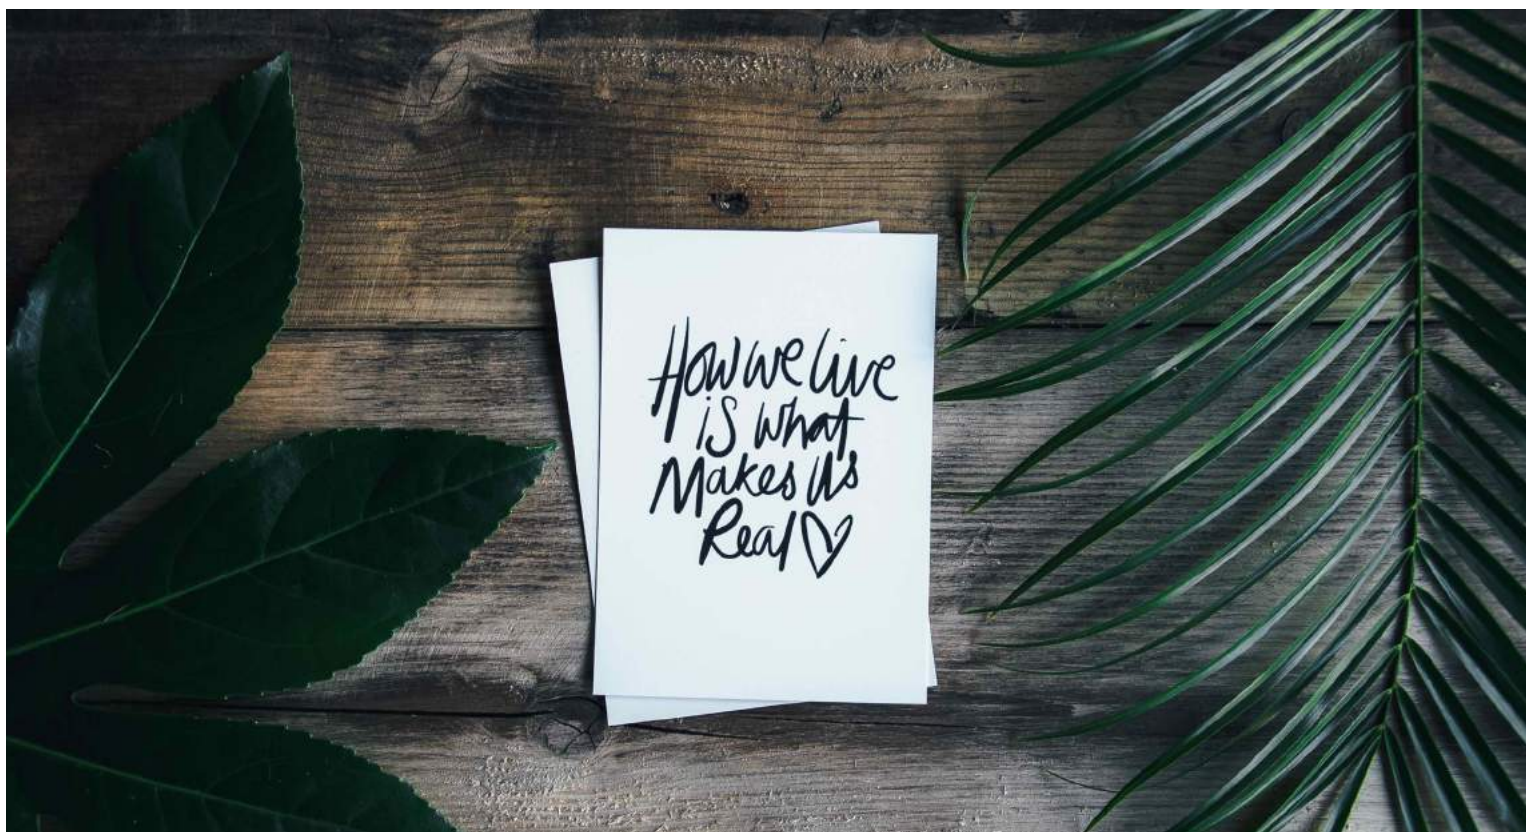 How we live
is what
Makes Us
Real